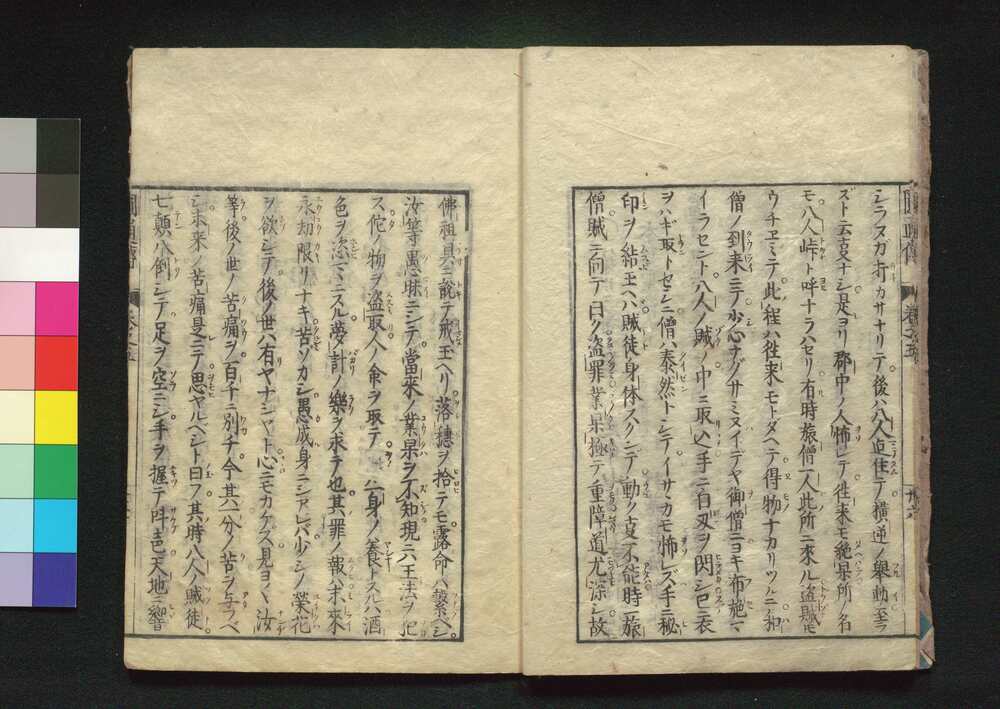 シラスガ打カサナリテ後ハ八人迄住テ横逆ノ舉動至ラ
ズト云支ナシ是ヨリ郡中ノ人怖レテ往来モ絶果所ノ名
モ八人峠ト呼ナラハセリ有時旅僧一人此所ニ來ル盗賊モ
ウチヱミテ此程ハ往来モトダヘテ得物ナカリツルニ和
僧ノ到来ニテ少心ナグサミヌイデヤ御僧ニヨキ布施マ
イラセント八人ノ賊ノ中ニ取込手ニ白刄ヲ閃シ已ニ衣
ヲハギ取トセシニ僧ハ泰然トシテイサヽカモ怖レズ手ニ秘
印ヲ結玉ヘハ賊徒身体スクンデ動ク支不能時ニ旅
僧賊ニ向テ曰ク盗罪業果極テ重障道尤深シ故
佛祖具ニ説テ戒玉ヘリ落穂ヲ拾テモ露命ハ繋ベシ
汝等愚昧ニシテ當來ノ業果ヲ不知現ニハ王法ヲ犯
ス佗ノ物ヲ盗取人ノ命ヲ取テ一身ノ養トスルハ酒
色ヲ恣ニスル夢計ノ樂ヲ求テ也其罪ノ報ハ未来
永劫限リナキ苦ゾカシ愚成身ニシアレバ少シノ榮花
ヲ欲シテ後ノ世ハ有ヤナシヤト心ニモカケズ見ヨヽ汝
等後ノ世ノ苦痛ヲ百千ニ別チ今其一分ノ苦ヲ与フベ
シ未来ノ苦痛是ニテ思ヤルベシト曰フ其時八人ノ賊徒
七顛八倒シテ足ヲ空ニシ手ヲ握テ呌声天地ニ響